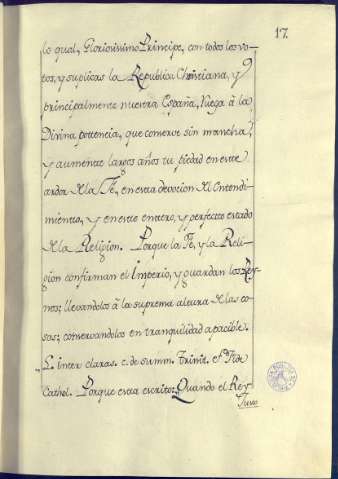 17.
lo qual, Gloriosissimo Principe, con todos los vo-
tos, y suplicas la Republica Christiana, y
principalmente nuestra España, ruega à la
Divina potencia, que conserve sin mancha,
y aumente largos años tu piedad en este
ardor de la Fé, en esta devocion del Entendi-
miento, y en este entero, y perfecto estado
de la Religion. Porque la Fé, y la Reli-
gion confirman el Imperio, y guardan los Rey-
nos; llevandolos à la suprema altura de las co-
sas; conservandolos en tranquilidad apacible.
L. inter claras. c. de summ. Trinit. et Fide
Cathol. Porque esta escrito: Quando el Rey